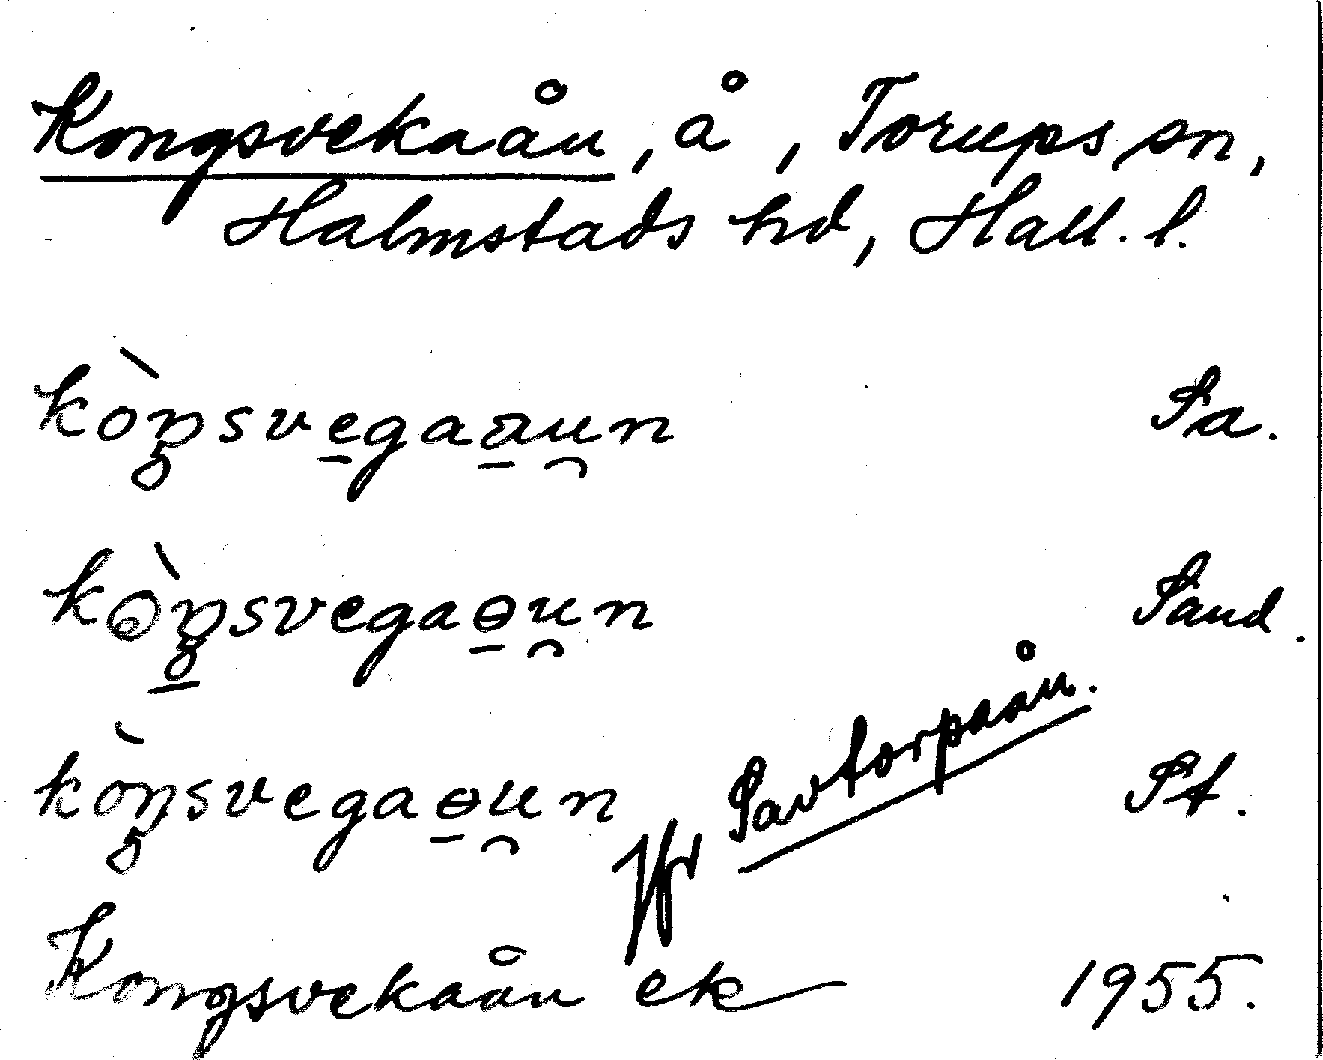 Kongsvekaån, å, Torups sn,
Halmstads hd, Hall. l.
kòŋsvegaa̱u̯n Sa.
kòŋsvegaɵ̱u̯n Sand.
kòŋsvegaɵ̱u̯n St.
Jfr Savtorpaån.
Kongsvekaån ek 1955.